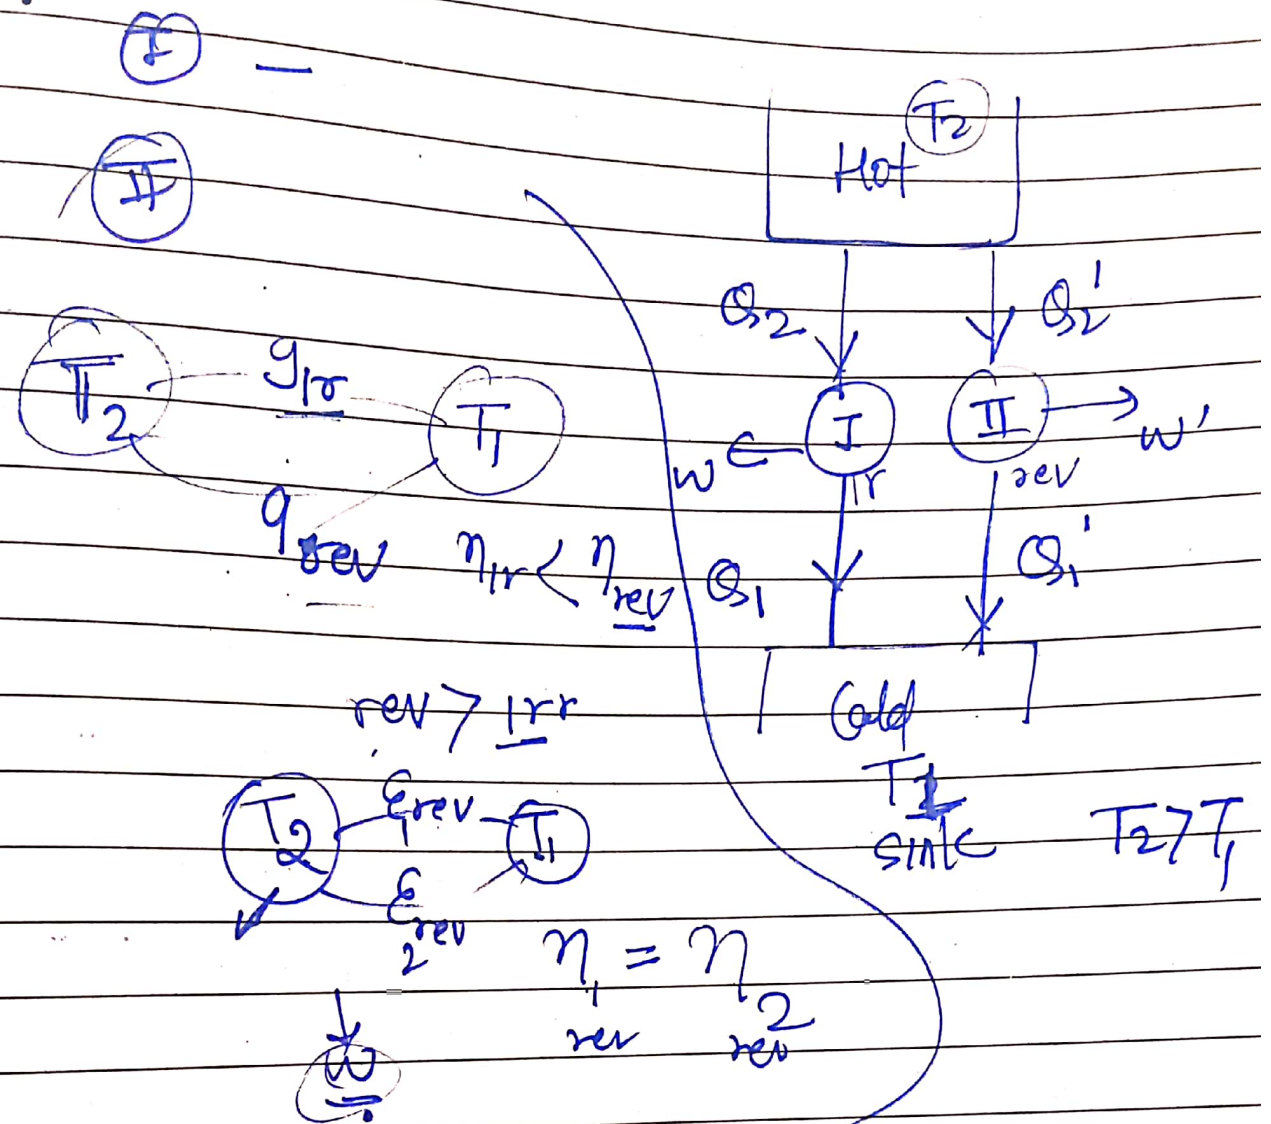 I –
II
T2 qir T1
qrev ηir < ηrev
rev > irr
T2 Ɛ1rev T1
Ɛ2rev
η1rev = η2rev
W
Hot T2
Q2 Q2'
W I II W'
ir rev
Q1 Q1'
Cold
T1
sink T2 > T1